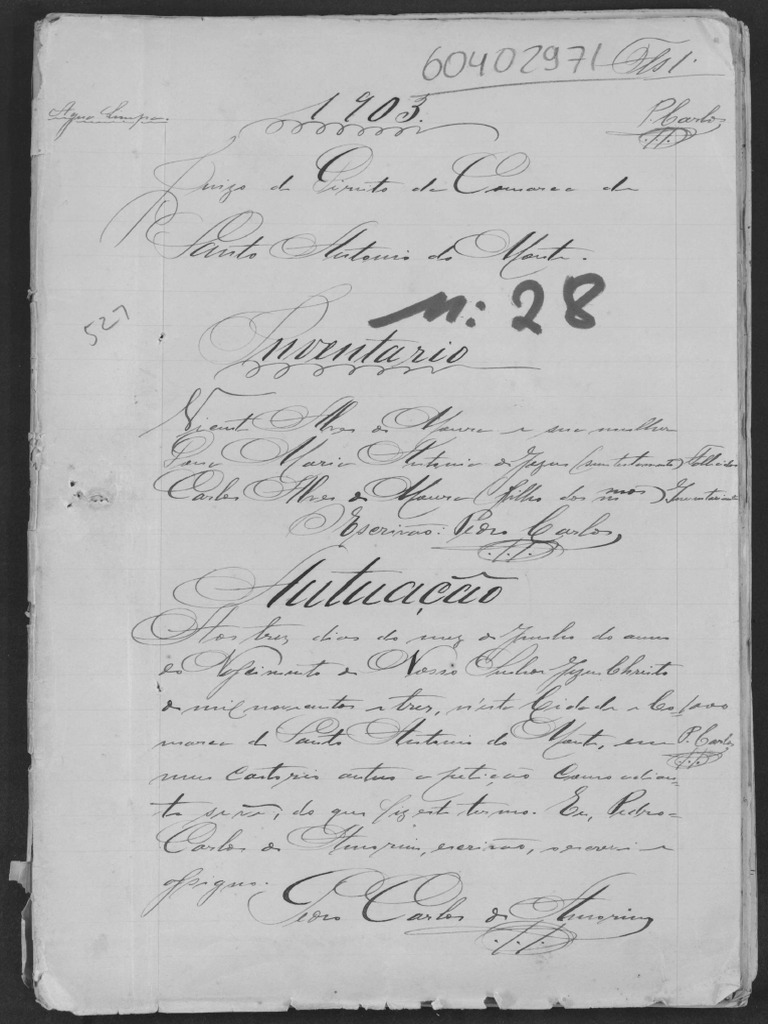 60402971 Fls 1.
Agua Limpa.
1903.
P. Carlos
Juizo de Direito da Comarca de
Santo Antonio do Monte.
n: 28
527
Inventario
Vicente Alves de Moura e sua mulher
Dona Maria Antonia de Jesus (sem testamento) Fallecidos
Carlos Alves de Moura (filho dos mmos) Inventariante
Escrivão: Pedro Carlos
Autuação
Aos trez dias do mez de Junho do anno
do Nascimento de Nosso Senhor Jesus Christo
de mil novecentos e trez, n'esta Cidade e Co-
marca de Santo Antonio do Monte, em
P. Carlos
meu cartorio autuo a petição como adian-
te se vê, do que fiz este termo. Eu, Pedro
Carlos de Amorim, escrivão, o escrevi e
assigno.
Pedro Carlos de Amorim